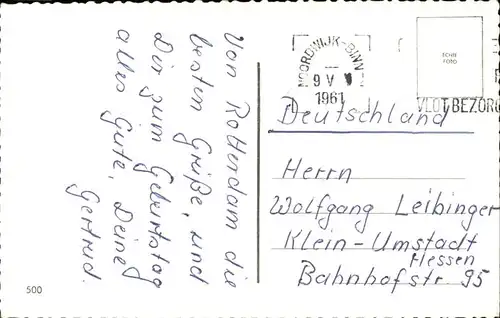 Von Rotterdam die
besten Grüße, und
Dir zum Geburtstag
alles Gute, Deine
Gertrud.
500
NOORDWIJK-BINN
9 V
1961
ECHTE
FOTO
VLOT BEZORG
Deutschland
Herrn
Wolfgang Leibinger
Klein-Umstadt
Hessen
Bahnhofstr 95